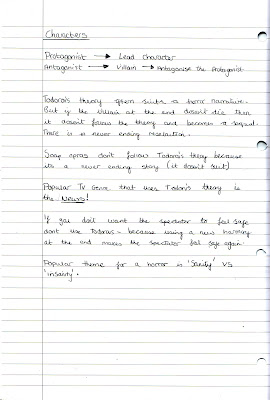 Characters
Protagonist → Lead character
Antagonist → Villain → Antagonise the Protagonist
Todorov's theory often suits a horror narrative.
But if the villain at the end doesn't die then
it doesn't follow the theory and becomes a sequel.
There is a never ending resolution.
Soap operas don't follow Todorov's theory because
its a never ending story (it doesn't suit)
Popular TV Genre that uses Todorov's theory is
the News!
If you don't want the spectator to feel safe
dont use Todorovs - because using a new harmony
at the end makes the spectator feel safe again.
Popular theme for a horror is 'Sanity' VS
'insanity'.